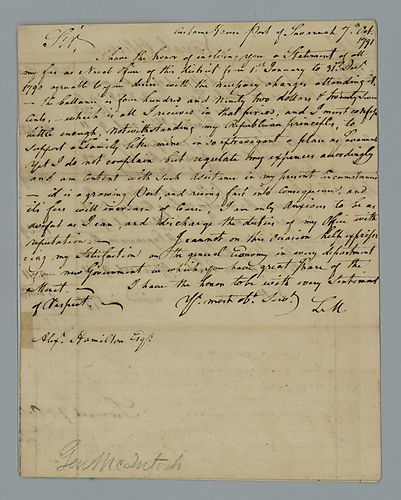 Custom House Port of Savannah 7th Oct.
1791
Sir
I have the honor of inclosing you a Statement of all
my fees as Naval Officer of this District from 1st January to 31st Decr
1790 agreeable to your desire with the necessary charges attending it,
— the ballance is four hundred and Ninety two dollars &
cents, — which is all I received in that period, and I must confess
little enough, notwithstanding my Republican principles, to
Support a family like mine in so extravagant a place as Savannah
Yet I do not complain but regulate my expences accordingly
and am content with such assistance in my present Circumstances
— it is a growing Port, and rising fast into consequence, and
its fees will increase of Course, I am only Anxious to be as
useful as I can, and discharge the duties of my Office with
reputation. — I cannot on this occasion help express
ing my Satisfaction on the general Economy in every department
of our new Government in which you have great share of the
Merit. — I have the honor to be with every Sentiment
of Respect. — Yr. most obt. Servt
L. M.
Alexr. Hamilton Esqr.
Gen McIntosh